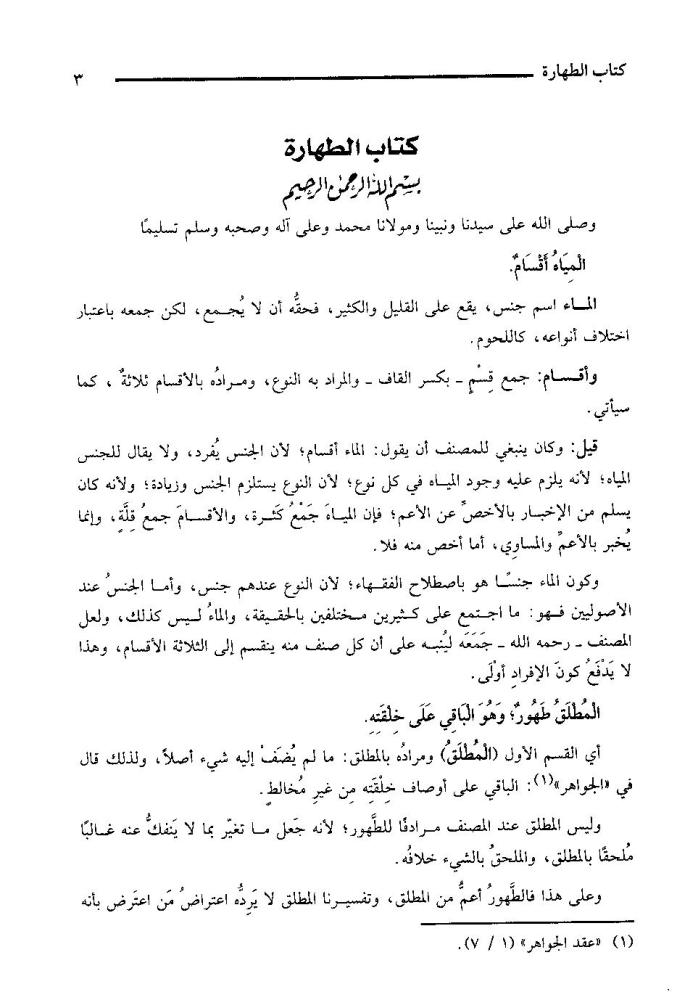 كتاب الطهارة ٣
كتاب الطهارة
بسم الله الرحمن الرحيم
وصلى الله على سيدنا ونبينا ومولانا محمد وعلى آله وصحبه وسلم تسليمًا
الْمِيَاهُ أَقْسَامٌ.
المـاء اسم جنس، يقع على القليل والكثير، فحقُّه أن لا يُجـمع، لكن جمعه باعتبار
اختلاف أنواعه، كاللحوم.
وأقـسـام: جمع قِسْمٍ ـ بكسر القاف ـ والمراد به النوع، ومـرادُه بالأقسام ثلاثةٌ، كما
سيأتي.
قيل: وكان ينبغي للمصنف أن يقول: الماء أقسام؛ لأن الجنس يُفرد، ولا يقال للجنس
المياه؛ لأنه يلزم عليه وجود الميـاه في كل نوع؛ لأن النوع يستلزم الجنس وزيادة؛ ولأنه كان
يسلم من الإخبـار بالأخصِّ عن الأعم؛ فإن الميـاهَ جَمْعُ كَثـرة، والأقسامَ جمعُ قِلَّةٍ، وإنما
يُخبر بالأعمِّ والمساوِي، أما أخص منه فلا.
وكون الماء جنسًـا هو باصطلاح الفقـهاء؛ لأن النوع عندهم جنس، وأما الجنسُ عند
الأصوليين فـهو: ما اجتـمع على كثيرين مـختلفين بالحقيـقة، والماءُ ليـس كذلك، ولعل
المصنف ـ رحمه الله ـ جَمَعَه ليُنبـه على أن كل صنف منه ينقسم إلى الثلاثة الأقسام، وهذا
لا يَدْفَعُ كونَ الإفرادِ أَوْلَى.
الْمُطْلَقُ طَهُورٌ؛ وَهُوَ الْبَاقِي عَلَى خِلْقَتِهِ.
أي القسم الأول (الْمُطْلَقُ) ومرادُه بالمطلق: ما لم يُضَفْ إليه شيء أصلاً، ولذلك قال
في «الجواهر»(١): الباقي على أوصاف خِلْقَتِه مِن غيرِ مُخالطٍ.
وليس المطلق عند المصنف مـرادفًا للطَّهور؛ لأنه جَعل مـا تغيّر بما لا يَنفكُّ عنه غـالبًا
مُلحقًا بالمطلق، والملحقُ بالشيء خلافُه.
وعلى هذا فالطَّهورُ أعمُّ من المطلق، وتفسيـرنا المطلق لا يَرِدُّه اعتراضُ مَن اعتَرض بأنه
(١) «عقد الجواهر» (١ / ٧).